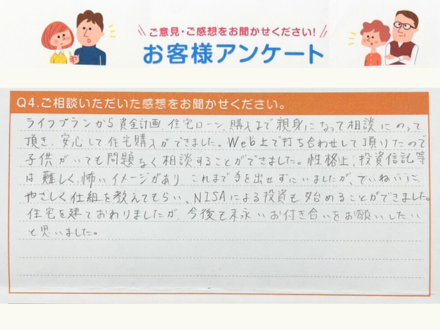 ご意見・ご感想をお聞かせください!
お客様アンケート
Q4.ご相談いただいた感想をお聞かせください。
ライフプランから資金計画、住宅ローン、購入まで親身になって相談にのって
頂き、安心して住宅購入ができました。Web上で打ち合わせして頂けたので
子供がいても問題なく相談することができました。性格上、投資信託等
は難しく、怖いイメージがあり、これまで手を出せずにいましたが、ていねいに、
やさしく仕組を教えてもらい、NISAによる投資も始めることができました。
住宅を建ておわりましたが、今後も末永いお付き合いをお願いしたい
と思いました。